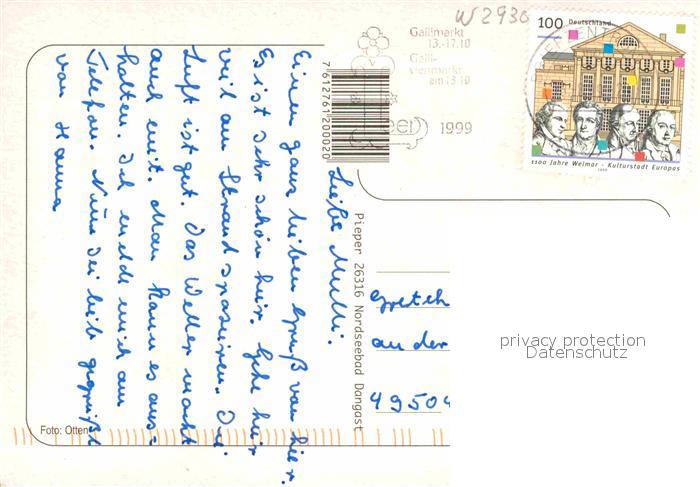 W 2930
100 Deutschland
1100 Jahre Weimar - Kulturstadt Europas
1999
Gallimarkt
13.-17.10
Galli-
viehmarkt
am 13.10
1999
7612761200020
Liebe Mutti.
Einen ganz lieben Gruß von hier.
Es ist sehr schön hier. Gehe hier
viel am Strand spazieren. Die
Luft ist gut. Das Wetter macht
auch mit. Man kann es aus=
halten. Ich melde mich am
Telefon. Nun sei lieb gegrüßt
von Hanna
Pieper 26316 Nordseebad Dangast
Greteh
an der
49504
privacy protection
Datenschutz
Foto: Otten